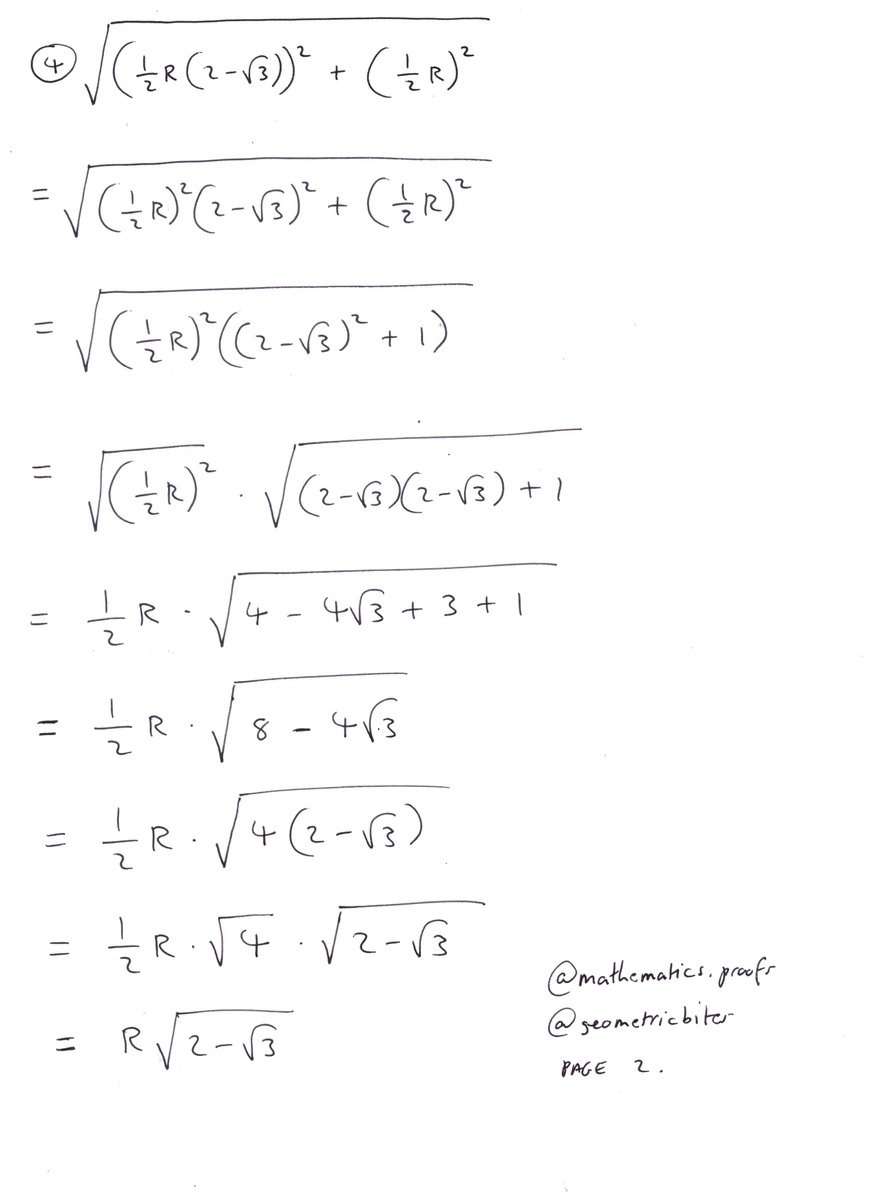 ④ √((½R(2-√3))² + (½R)²)
= √((½R)²(2-√3)² + (½R)²)
= √((½R)²((2-√3)² + 1))
= √(½R)² · √((2-√3)(2-√3) + 1)
= ½R · √(4 - 4√3 + 3 + 1)
= ½R · √(8 - 4√3)
= ½R · √(4(2-√3))
= ½R · √4 · √(2-√3)
= R√(2-√3)
@mathematics.proofs
@geometricbites
PAGE 2.